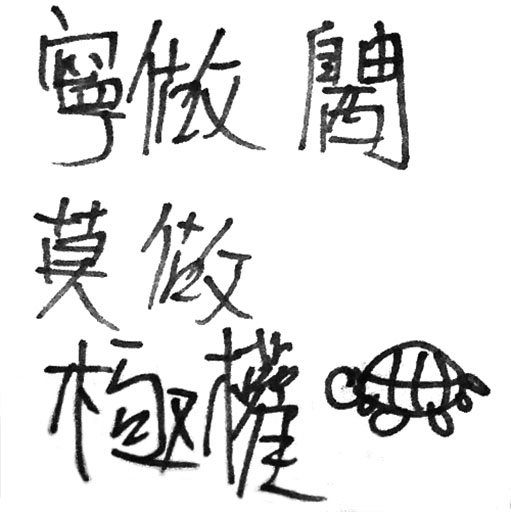 寧做閪
莫做
極權